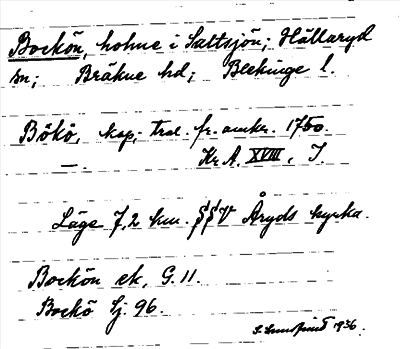 Bockön, holme i Saltsjön; Hällaryd
sn; Bräkne hd; Blekinge l.
Bökö, kap, fr. 1750.
—. Kr. A. XVIII, I.
Läge 7,2 km. SSV Åryds kyrka.
Bockön ek, G. 11.
Bockö Sj. 96.
1936.